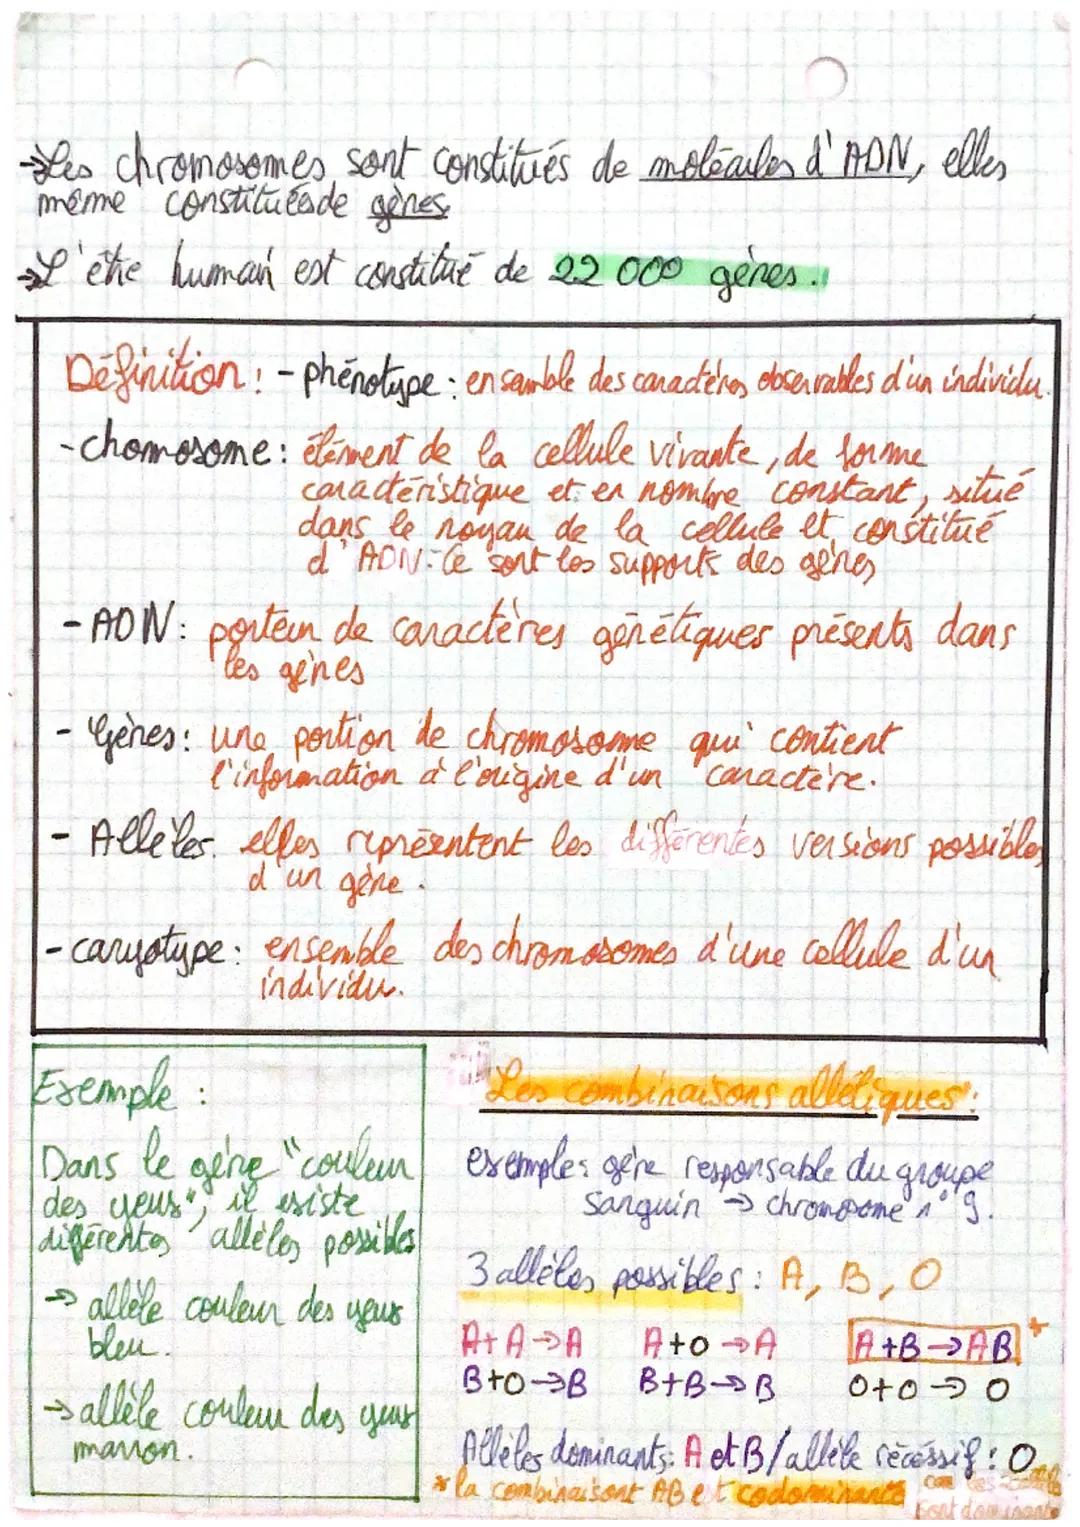 →Les chromosomes sont constitués de molécules d'ADN, elles
même constituées de gènes.
→L'être humain est constitué de 22 000 gènes.
Définition : - phénotype : ensemble des caractères observables d'un individu.
- chomosome : élément de la cellule vivante, de forme
caractéristique et en nombre constant, situé
dans le noyau de la cellule et constitué
d'ADN. Ce sont les supports des gènes
- ADN : porteur de caractères génétiques présents dans
les gènes
- Gènes : une portion de chromosome qui contient
l'information à l'origine d'un caractère.
- Allèles. elles représentent les différentes versions possibles
d'un gène.
- caryotype : ensemble des chromosomes d'une cellule d'un
individu.
Exemple :
Dans le gène "couleur
des yeux", il existe
différentes allèles possibles
→ allèle couleur des yeux
bleu.
→ allèle couleur des yeux
marron.
Les combinaisons alléliques :
exemple : gène responsable du groupe
sanguin → chromosome n° 9.
3 allèles possibles : A, B, O
A+A→A A+O→A A+B→AB *
B+O→B B+B→B O+O→O
Allèles dominants : A et B / allèle récessif : O
* la combinaisont AB et codominante car les
sont dominants